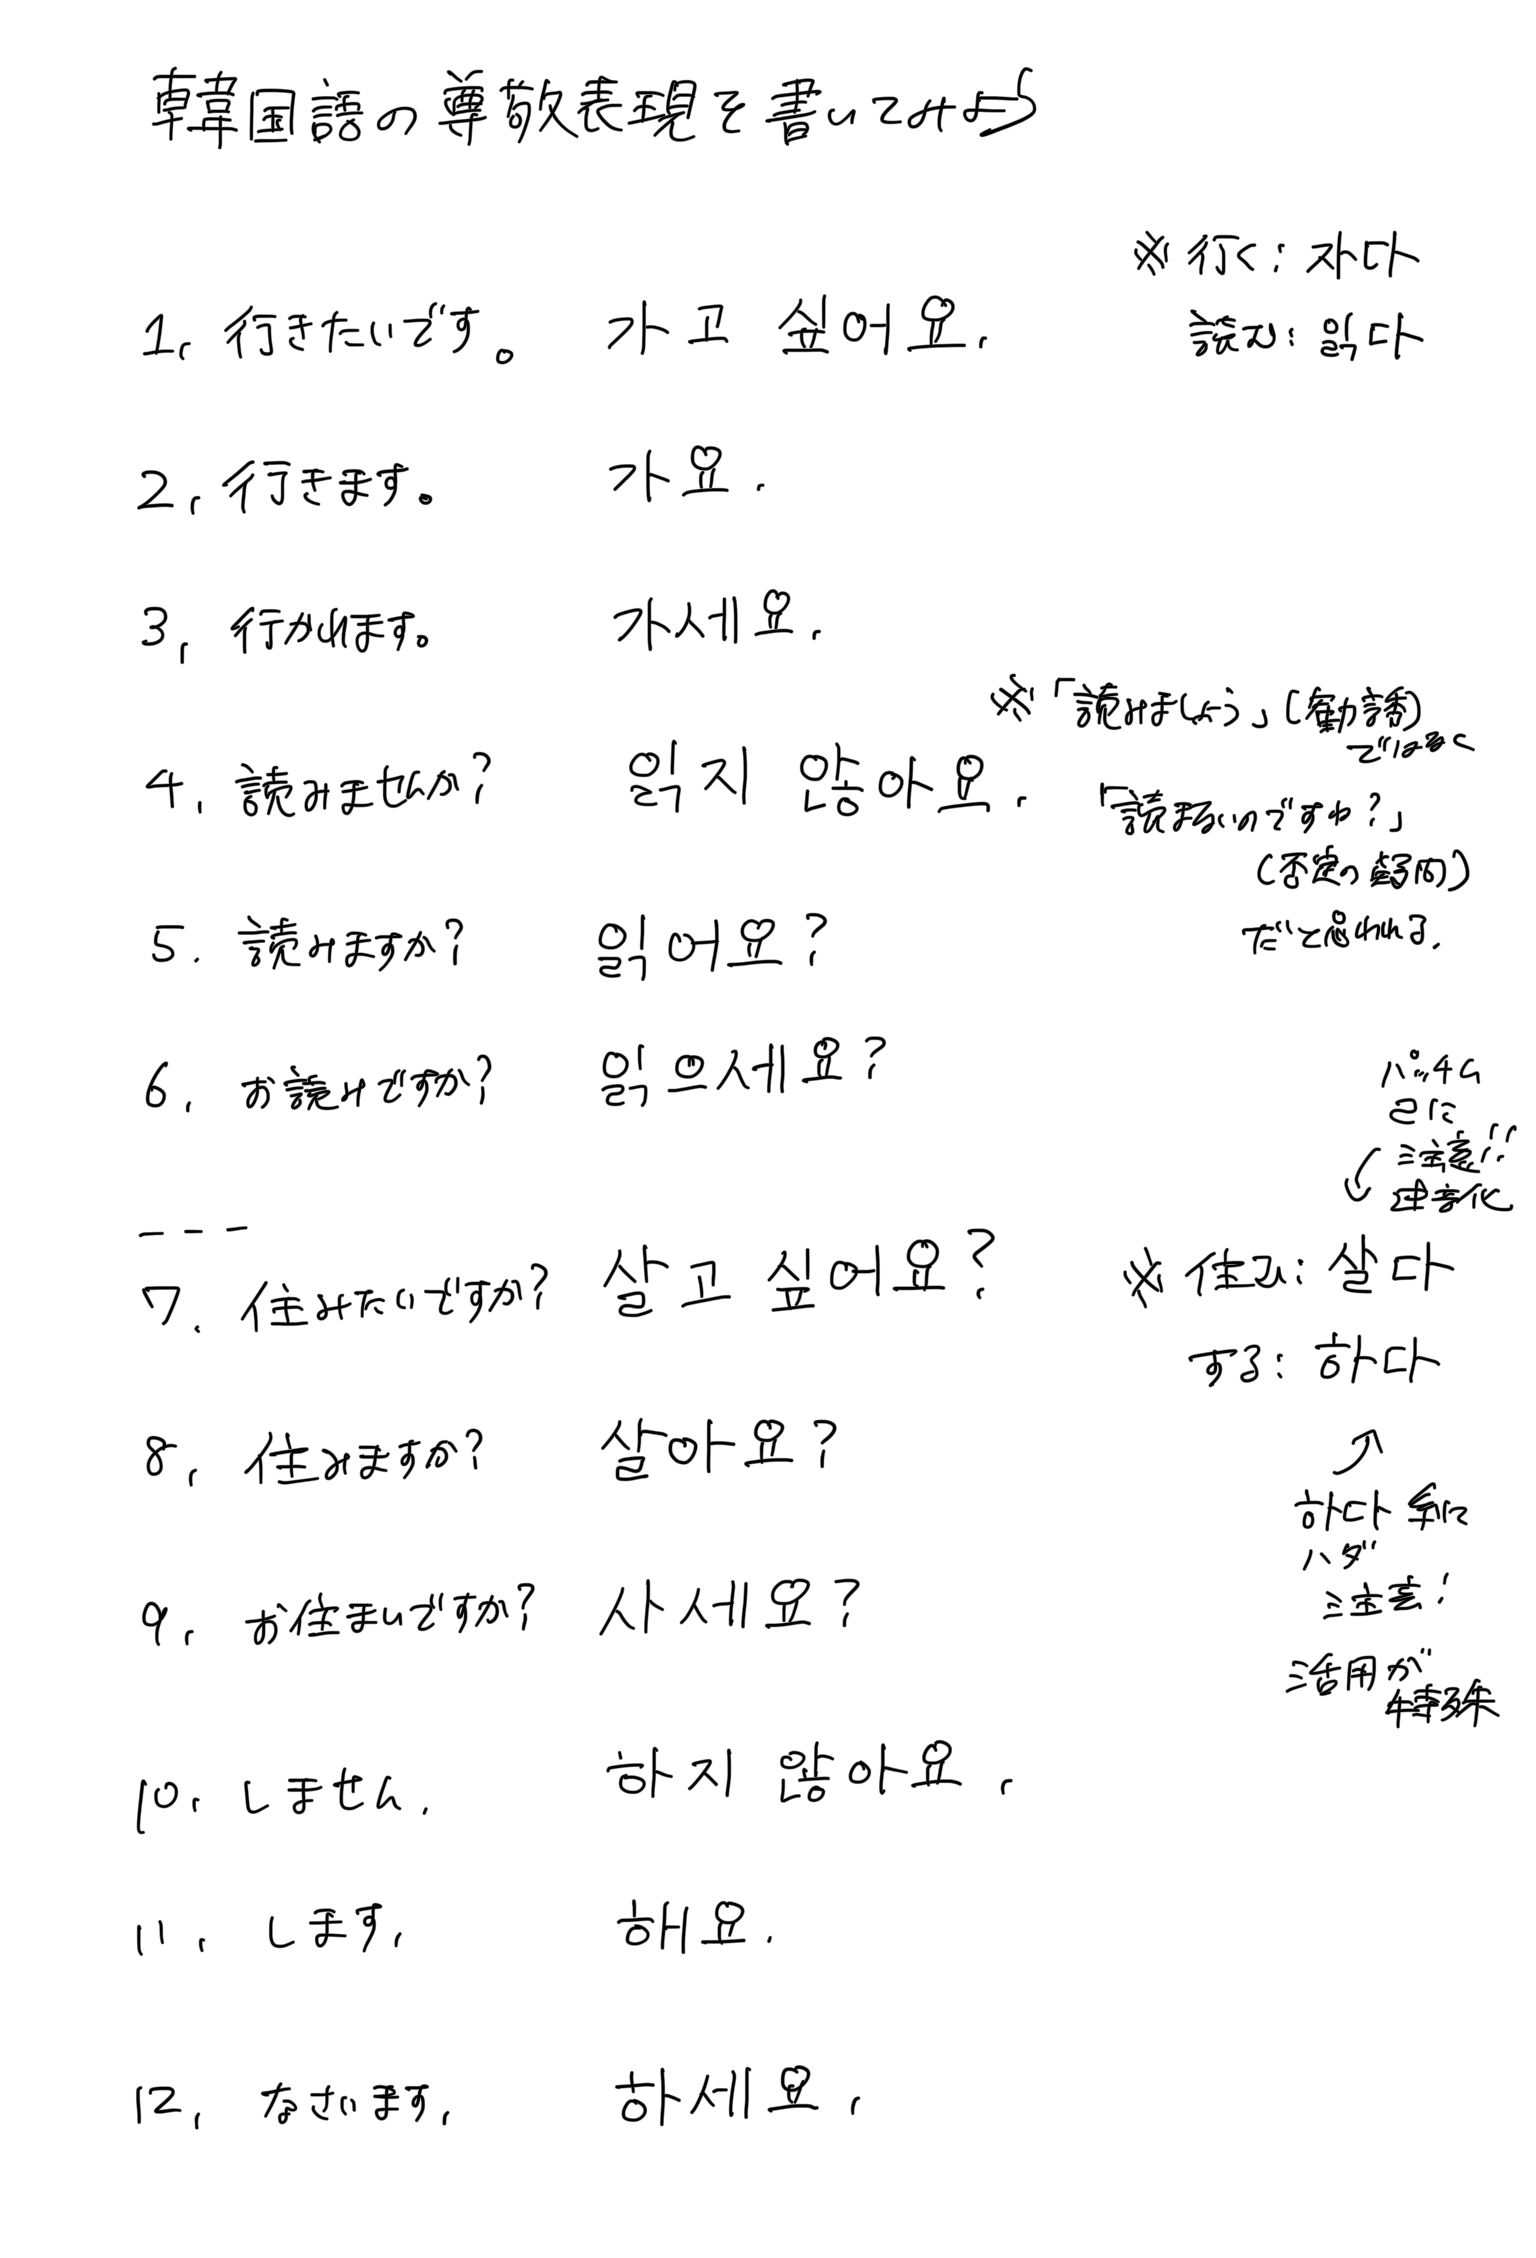 韓国語の尊敬表現を書いてみよう
※行く:자다
読む:읽다
1. 行きたいです。 가고 싶어요.
2. 行きます。 가요.
3. 行かれます。 가세요.
4. 読みませんか? 읽지 안ehind아요.
※「読みましょう」(勧誘)
ではなく
「読まないのですか?」
(否定の疑問)
だと思われる.
5. 読みますか? 읽어요?
6. お読みですか? 읽으세요?
パッチム
ㄹに
注意!!
連音化
---
7. 住みたいですか? 살고 싶어요?
※住む:살다
する:하다
8. 住みますか? 살아요?
하다系に
ハダ
注意!
活用が
特殊
9. お住まいですか? 사세요?
10. しません. 하지 않아요.
11. します. 해요.
12. なさいます. 하세요.